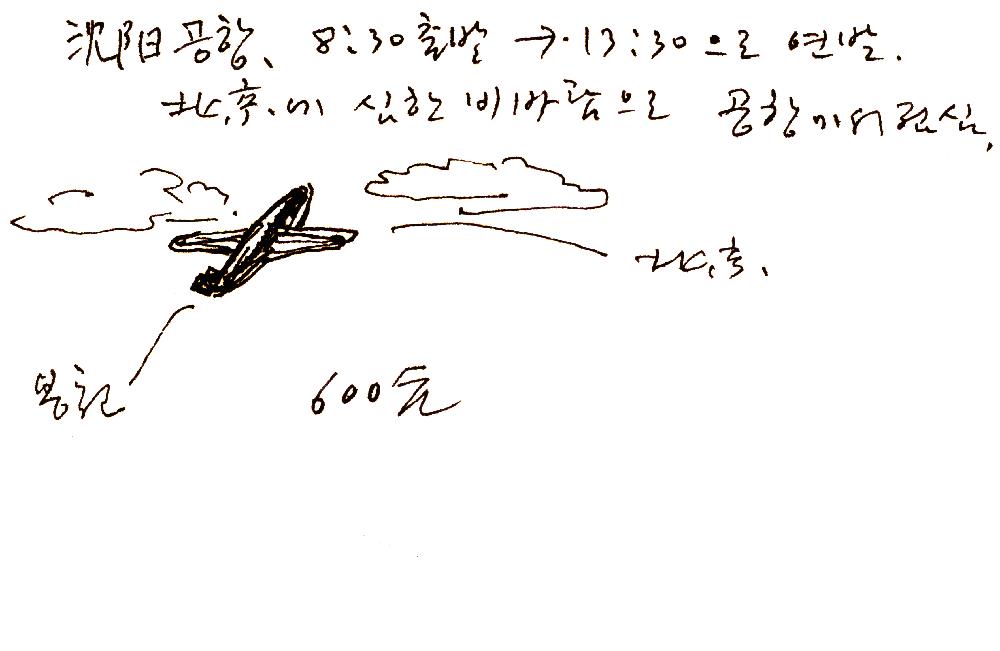 沈阳공항、 8:30출발 → 13:30으로 연발.
北京에 심한 비바람으로 공항
北京.
봉천
600